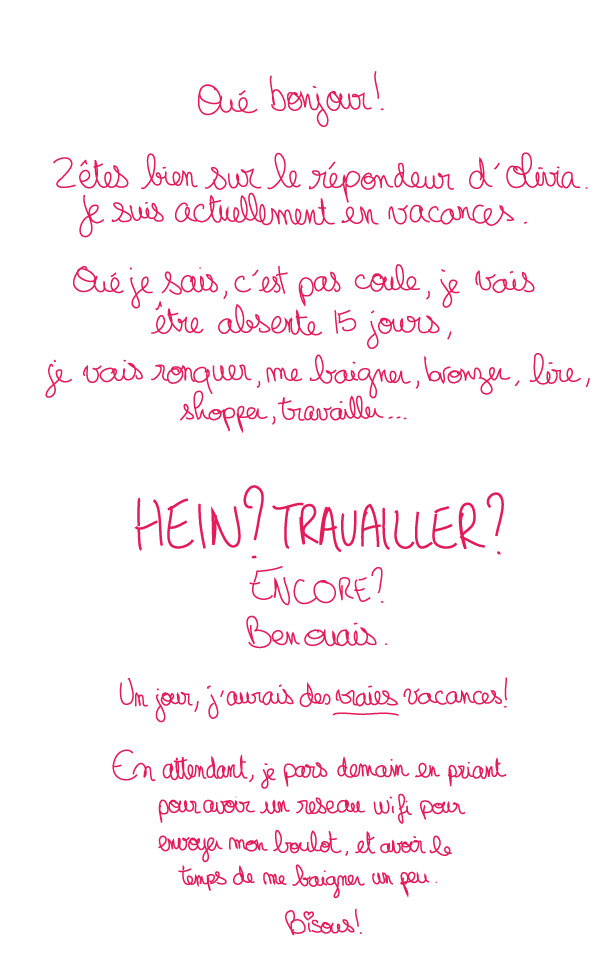 Oué bonjour!
Zêtes bien sur le répondeur d'Olivia.
Je suis actuellement en vacances.
Oué je sais, c'est pas coule, je vais
être absente 15 jours,
je vais ronquer, me baigner, bronzer, lire,
shopper, travailler...
HEIN? TRAVAILLER?
ENCORE?
Ben ouais.
Un jour, j'aurais des vraies vacances!
En attendant, je pars demain en priant
pour avoir un reseau wifi pour
envoyer mon boulot, et avoir le
temps de me baigner un peu.
Bisous!